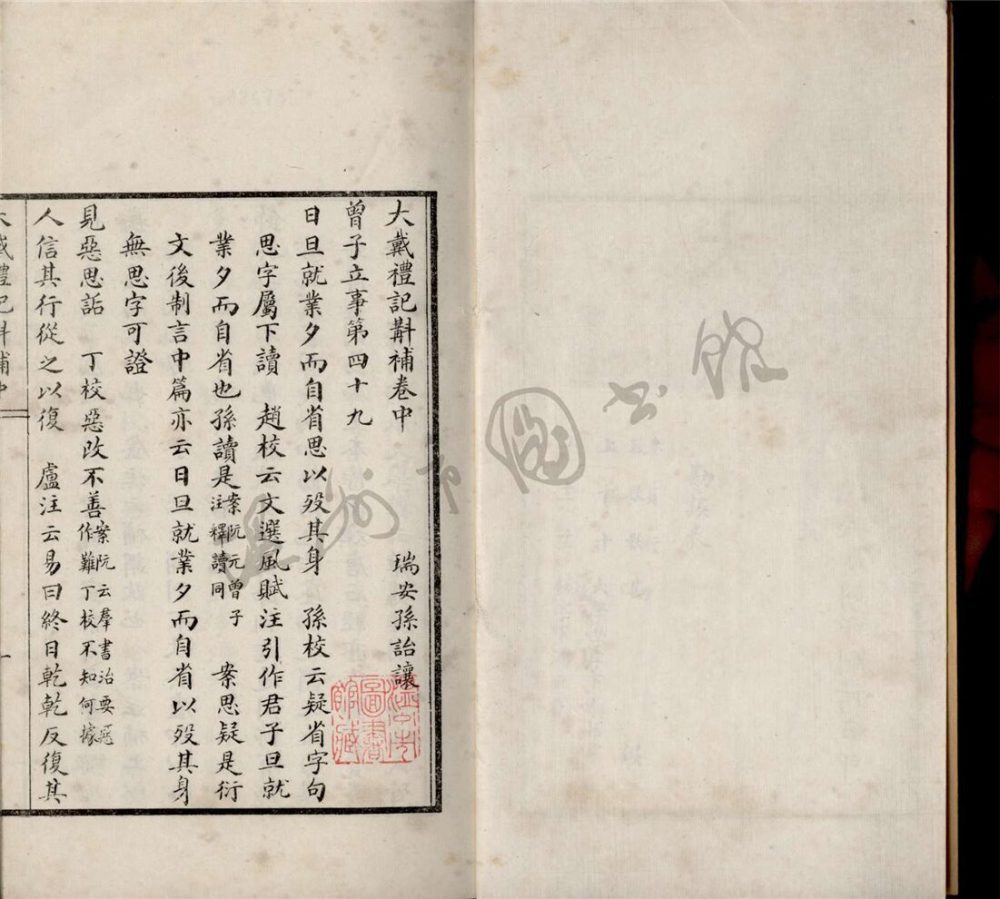 大戴禮記斠補卷中
瑞安孫詒讓
曾子立事第四十九
日旦就業夕而自省思以歿其身　孫校云疑省字句
思字屬下讀　趙校云文選風賦注引作君子旦就
業夕而自省也孫讀是案阮元曾子注釋讀同　案思疑是衍
文後制言中篇亦云日旦就業夕而自省以歿其身
無思字可證
見惡思詬　丁校惡改不善案阮云羣書治要惡作難丁校不知何據
人信其行從之以復　盧注云易曰終日乾乾反復其
大戴禮記斠補中
一
溫州市圖書館藏
溫州市圖書館